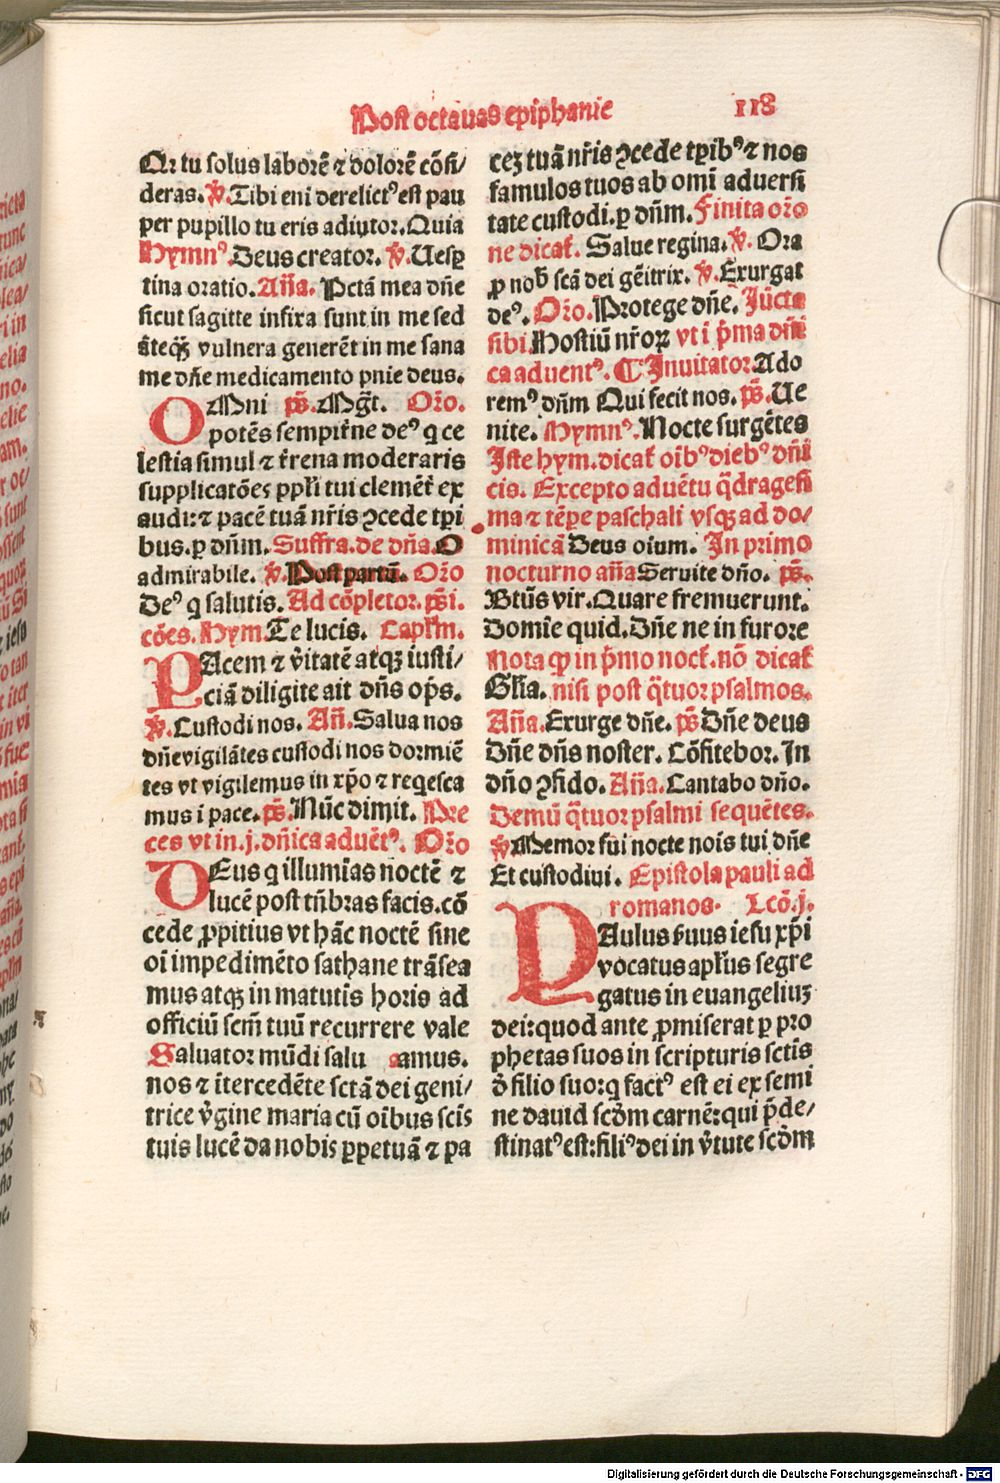 Post octauas epiphanie 118
Qr tu solus laborē ⁊ dolorē cōsi/
deras. ℣. Tibi eni derelictꝰ est pau
per pupillo tu eris adiutor. Quia
Hymnꝰ. Deus creator. ℣. Uesꝑ
tina oratio. Añа. Pctā mea dñe
sicut sagitte infixa sunt in me sed
āteqꝫ vulnera generēt in me sana
me dñe medicamento pnie deus.
Mgt̄. Or̄o.
OMni
potēs sempit̄ne deꝰ q ce
lestia simul ⁊ t̄rena moderaris
supplicatōes ppl̄i tui clemēt̄ ex
audi: ⁊ pacē tuā nr̄is ꝯcede tꝑi
bus. ꝑ dn̄m. Suffra. de dn̄a. O
admirabile. ℣. Post partū. Or̄o
Deꝰ q salutis. Ad cōpletoꝛ. ps̄. i.
cōes. Hym. Te lucis. Capl̄m.
PAcem ⁊ v̄itatē atqꝫ iusti/
ciā diligite ait dn̄s op̄s.
℣. Custodi nos. An̄. Salua nos
dn̄e vigilātes custodi nos dormiē
tes vt vigilemus in xp̄o ⁊ reqesca
mus i pace. ps̄. Nūc dimit. Pre
ces vt in .j. dn̄ica aduēt̄ꝰ. Or̄o
DEus q illumīas noctē ⁊
lucē post tn̄bras facis. cō
cede ꝓpitius vt hāc noctē sine
oī impedimēto sathane trāsea
mus atqꝫ in matutīs horis ad
officiū scm̄ tuū recurrere vale
Saluator mūdi salu amus.
nos ⁊ īt̄ercedēte sctā dei geni/
trice v̄gine maria cū oībus scīs
tuis lucē da nobis ꝑpetuā ⁊ pa
ceꝫ tuā nr̄is ꝯcede tꝑibꝰ ⁊ nos
famulos tuos ab omī aduersi
tate custodi. ꝑ dn̄m. Finita or̄o
ne dicat̄. Salue regina. ℣. Ora
ꝓ nob̄ scā dei gēitrix. ℣. Exurgat
deꝰ. Or̄o. Protege dn̄e. Jūcta
sibi. Hostiū nr̄oꝝ vt i p̄ma dn̄i
ca aduentꝰ. ¶ Inuitatoꝛ. Ado
remꝰ dn̄m Qui fecit nos. ps̄. Ue
nite. Hymnꝰ. Nocte surgētes
Iste hym. dicat̄ oībꝰ diebꝰ dn̄i
cis. Excepto aduētu q̄dragesi
ma ⁊ tēpe paschali vsqꝫ ad do/
minicā Deus oium. In primo
nocturno an̄a Seruite dn̄o. ps̄.
Btūs vir. Quare fremuerunt.
Domīe quid. Dn̄e ne in furore
Nota ꝙ in p̄mo noct̄. nō dicat̄
Gl̄ia. nisi post q̄tuoꝛ psalmos.
An̄a. Exurge dn̄e. ps̄ Dn̄e deus
Dn̄e dn̄s noster. Cōfitebor. In
dn̄o ꝯfido. An̄a. Cantabo dn̄o.
Demū q̄tuoꝛ psalmi sequētes.
℣. Memor fui nocte nois tui dn̄e
Et custodiui. Epistola pauli ad
romanos. Lcō. j.
PAulus s̄uus iesu xp̄i
vocatus apl̄us segre
gatus in euangeliuꝫ
dei: quod ante ꝓmiserat ꝑ pro
phetas suos in scripturis sctīs
d̄ filio suo: q factꝰ est ei ex semi
ne dauid scd̄m carnē: qui p̄de/
stinatꝰ est: filiꝰ dei in v̄tute scd̄m
Digitalisierung gefördert durch die Deutsche Forschungsgemeinschaft - DFG